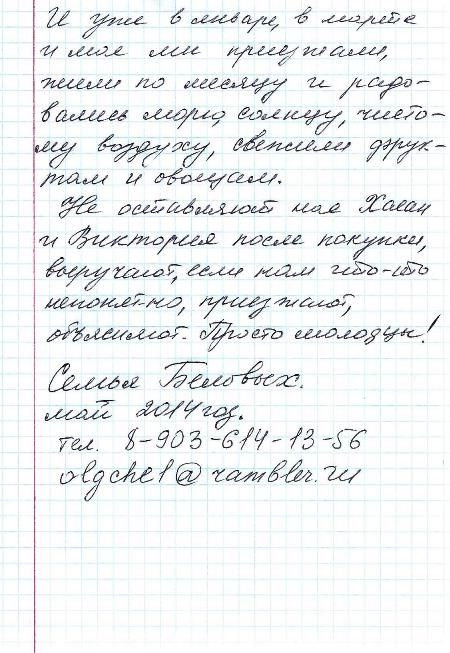 И уже в январе, в марте
и мае мы приезжали,
жили по месяцу и радо-
вались морю, солнцу, чисто-
му воздуху, свежим фрук-
там и овощам.
Не оставляют нас Хасан
и Виктория после покупки,
выручают, если нам что-то
непонятно, приезжают,
объясняют. Просто молодцы!
Семья Беловых.
май 2014 год.
тел. 8-903-614-13-56
olgche1@rambler.ru